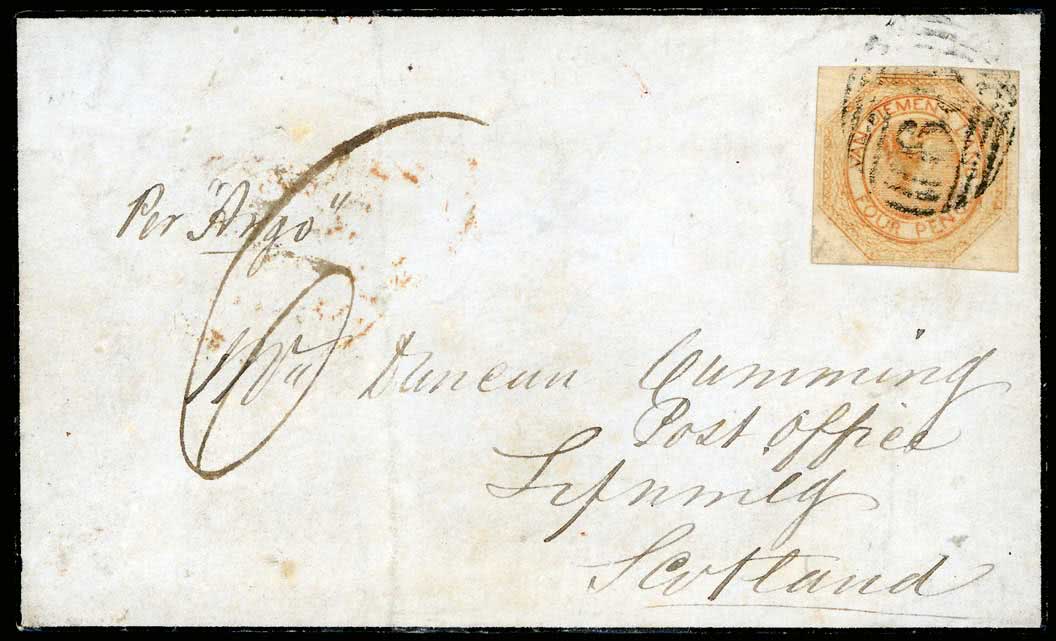 VAN DIEMENS LAND
FOUR PENCE
6
Per "Argo"
Mr Duncan Cumming
Post Office
Scotland